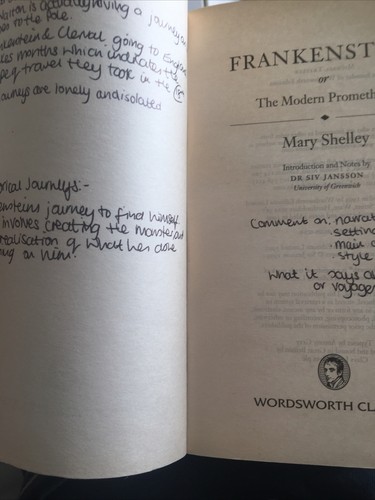 Walton is actually having a journey
to the Pole.
Frankenstein & Clerval going to England
takes months which indicates the
of travel they took in the C19
Journeys are lonely and isolated
Journeys:-
journey to find himself
involves creating the monster and
realisation of what he's done
on him.
FRANKENST
or
The Modern Prometh
Mary Shelley
Introduction and Notes by
DR SIV JANSSON
University of Greenwich
Comment on: narrat
setting
main c
style
What it says a
or voyage
WORDSWORTH CL